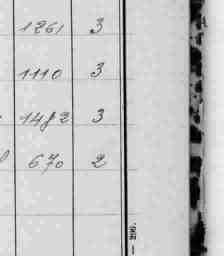 1261 3
1110 3
1482 3
670 2
— 296.